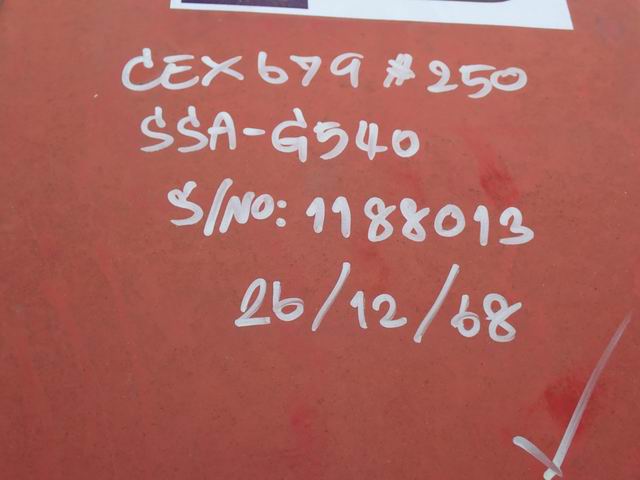 CEX679 #250
SSA-G540
S/NO: 1188013
26/12/68